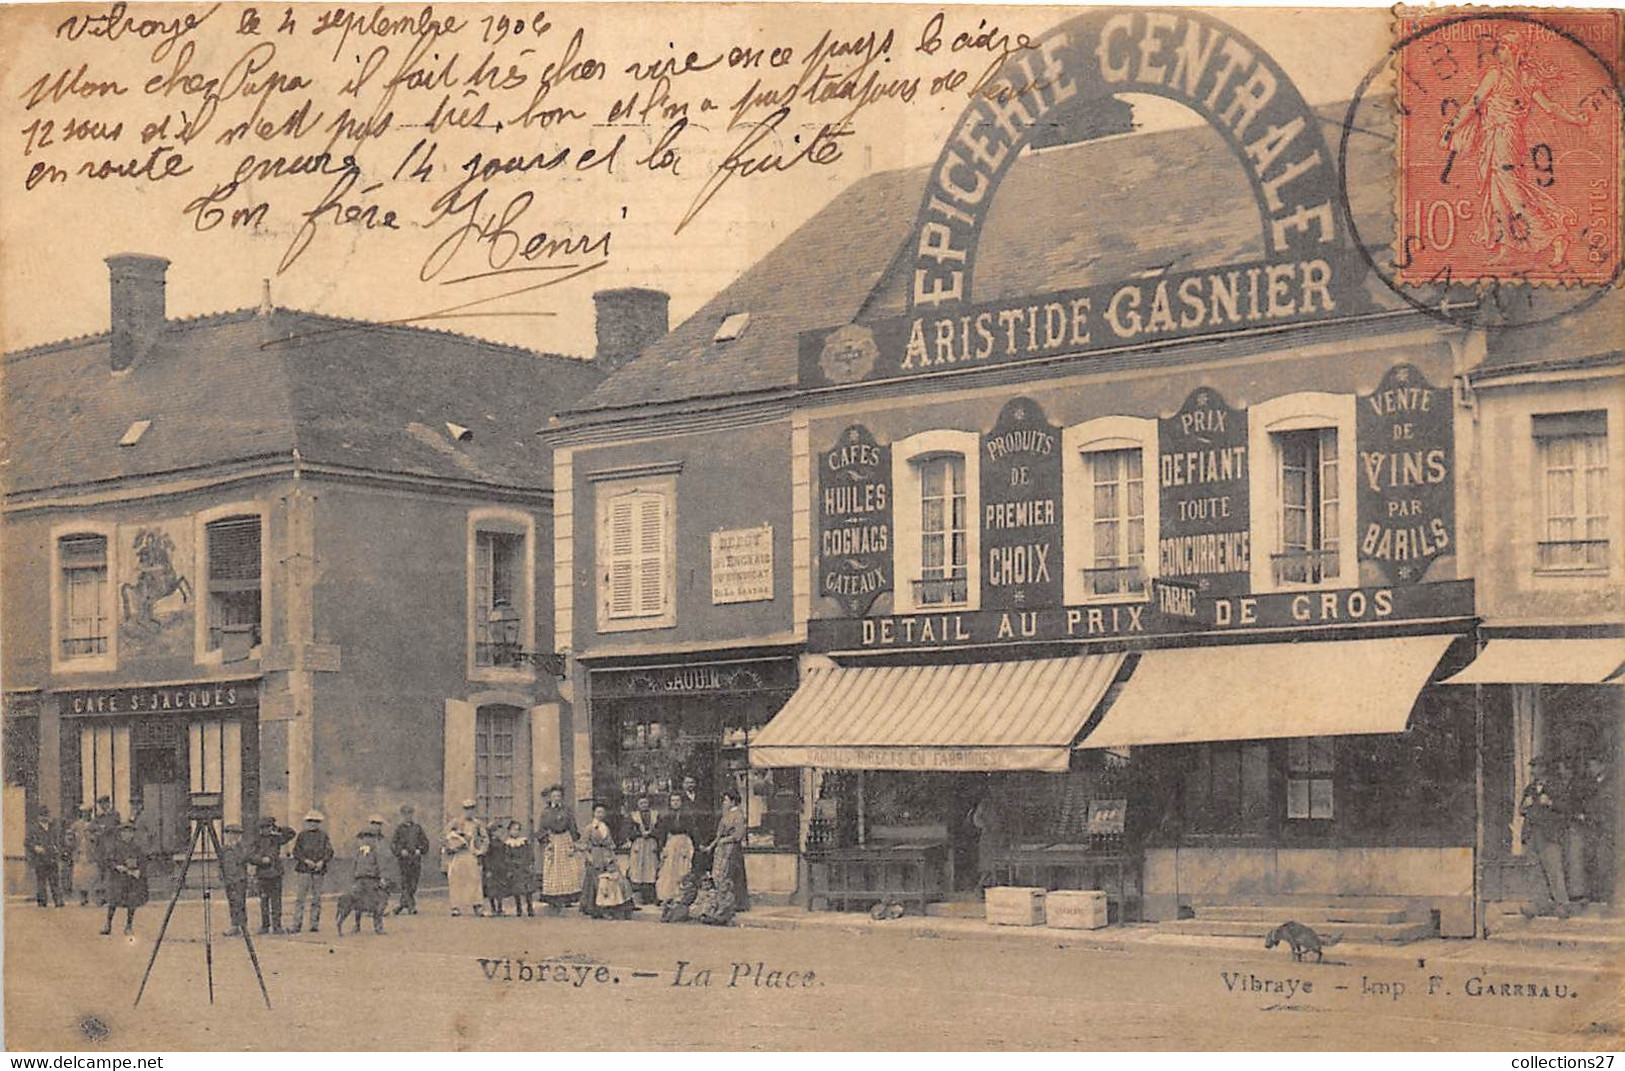 Vibraye le 4 septembre 1906
Mon cher Papa il fait très cher vivre en ce pays le cidre
12 sous et il n'est pas très bon et l'on a pas toujours de
en route encore 14 jours et la fuite
Ton frère
Henri
RÉPUBLIQUE FRANÇAISE
10c
POSTES
VIBRAYE
-9
06
SARTHE
EPICERIE CENTRALE
ARISTIDE GASNIER
CAFÉS
HUILES
COGNACS
GATEAUX
PRODUITS
DE
PREMIER
CHOIX
PRIX
DEFIANT
TOUTE
CONCURRENCE
VENTE
DE
VINS
PAR
BARILS
TABAC
DETAIL AU PRIX DE GROS
DEPOT
D'ENGRAIS
DU SYNDICAT
DE LA SARTHE
GAUDIN
CAFÉ St JACQUES
Vibraye. — La Place.
Vibraye — Imp. F. GARREAU.
collections27